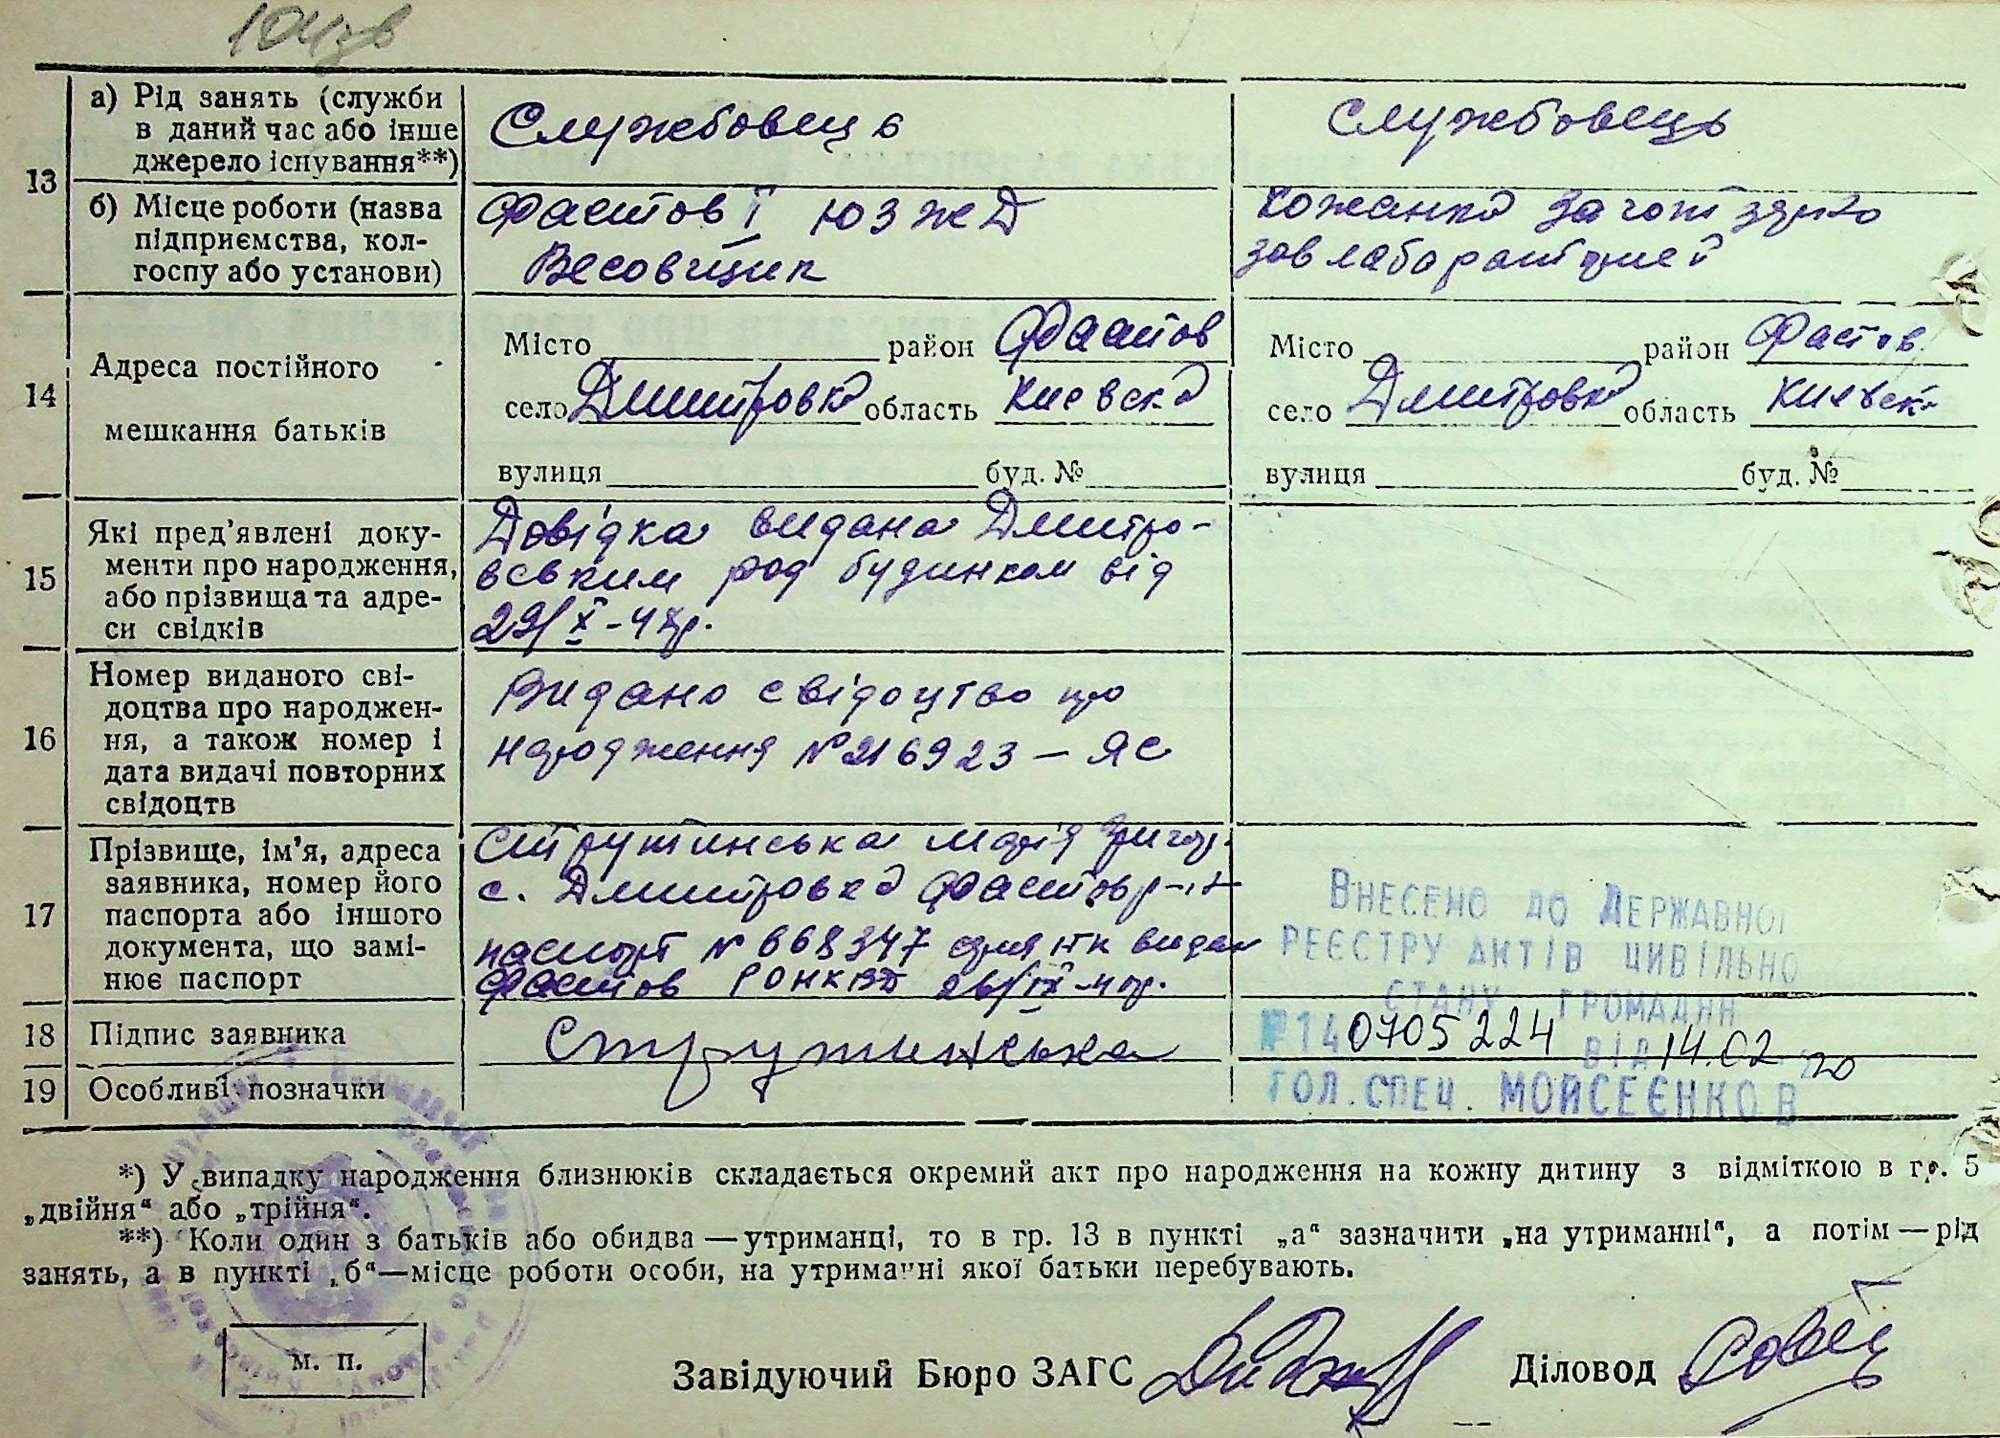 13
а) Рід занять (служби
в даний час або інше
джерело існування**)
Службовець
Службовець
б) Місце роботи (назва
підприємства, кол-
госпу або установи)
Фастов ІІ ЮЗЖД
Весовщик
Кожанка
зав лабораторией
14
Адреса постійного
мешкання батьків
Місто район Фастов
село Дмитровка область Киевска
вулиця буд. №
Місто район Фастов
село Дмитровка область Киевск
вулиця буд. №
15
Які пред’явлені доку-
менти про народження,
або прізвища та адре-
си свідків
Довідка видана Дмитро-
вським род будинком від
29/X-47р.
16
Номер виданого сві-
доцтва про народжен-
ня, а також номер і
дата видачі повторних
свідоцтв
Видано свідоцтво про
народження №216923 — ЯС
17
Прізвище, ім’я, адреса
заявника, номер його
паспорта або іншого
документа, що замі-
нює паспорт
Струтинська Марія Григор.
с. Дмитровка Фастов р-н
паспорт № 668347 видан
Фастов РОНКВД
ВНЕСЕНО ДО ДЕРЖАВНОГ
РЕЄСТРУ АКТІВ ЦИВІЛЬНО
СТАНУ ГРОМАДЯН
№ 140705224 ВІД 14.02 20
ГОЛ. СПЕЦ. МОЙСЕЄНКО В
18
Підпис заявника
Струтинська
19
Особливі позначки
*) У випадку народження близнюків складається окремий акт про народження на кожну дитину з відміткою в гр. 5
„двійня“ або „трійня“.
**) Коли один з батьків або обидва — утриманці, то в гр. 13 в пункті „а“ зазначити „на утриманні“, а потім — рід
занять, а в пункті „б“—місце роботи особи, на утриманні якої батьки перебувають.
М. П.
Завідуючий Бюро ЗАГС
Діловод